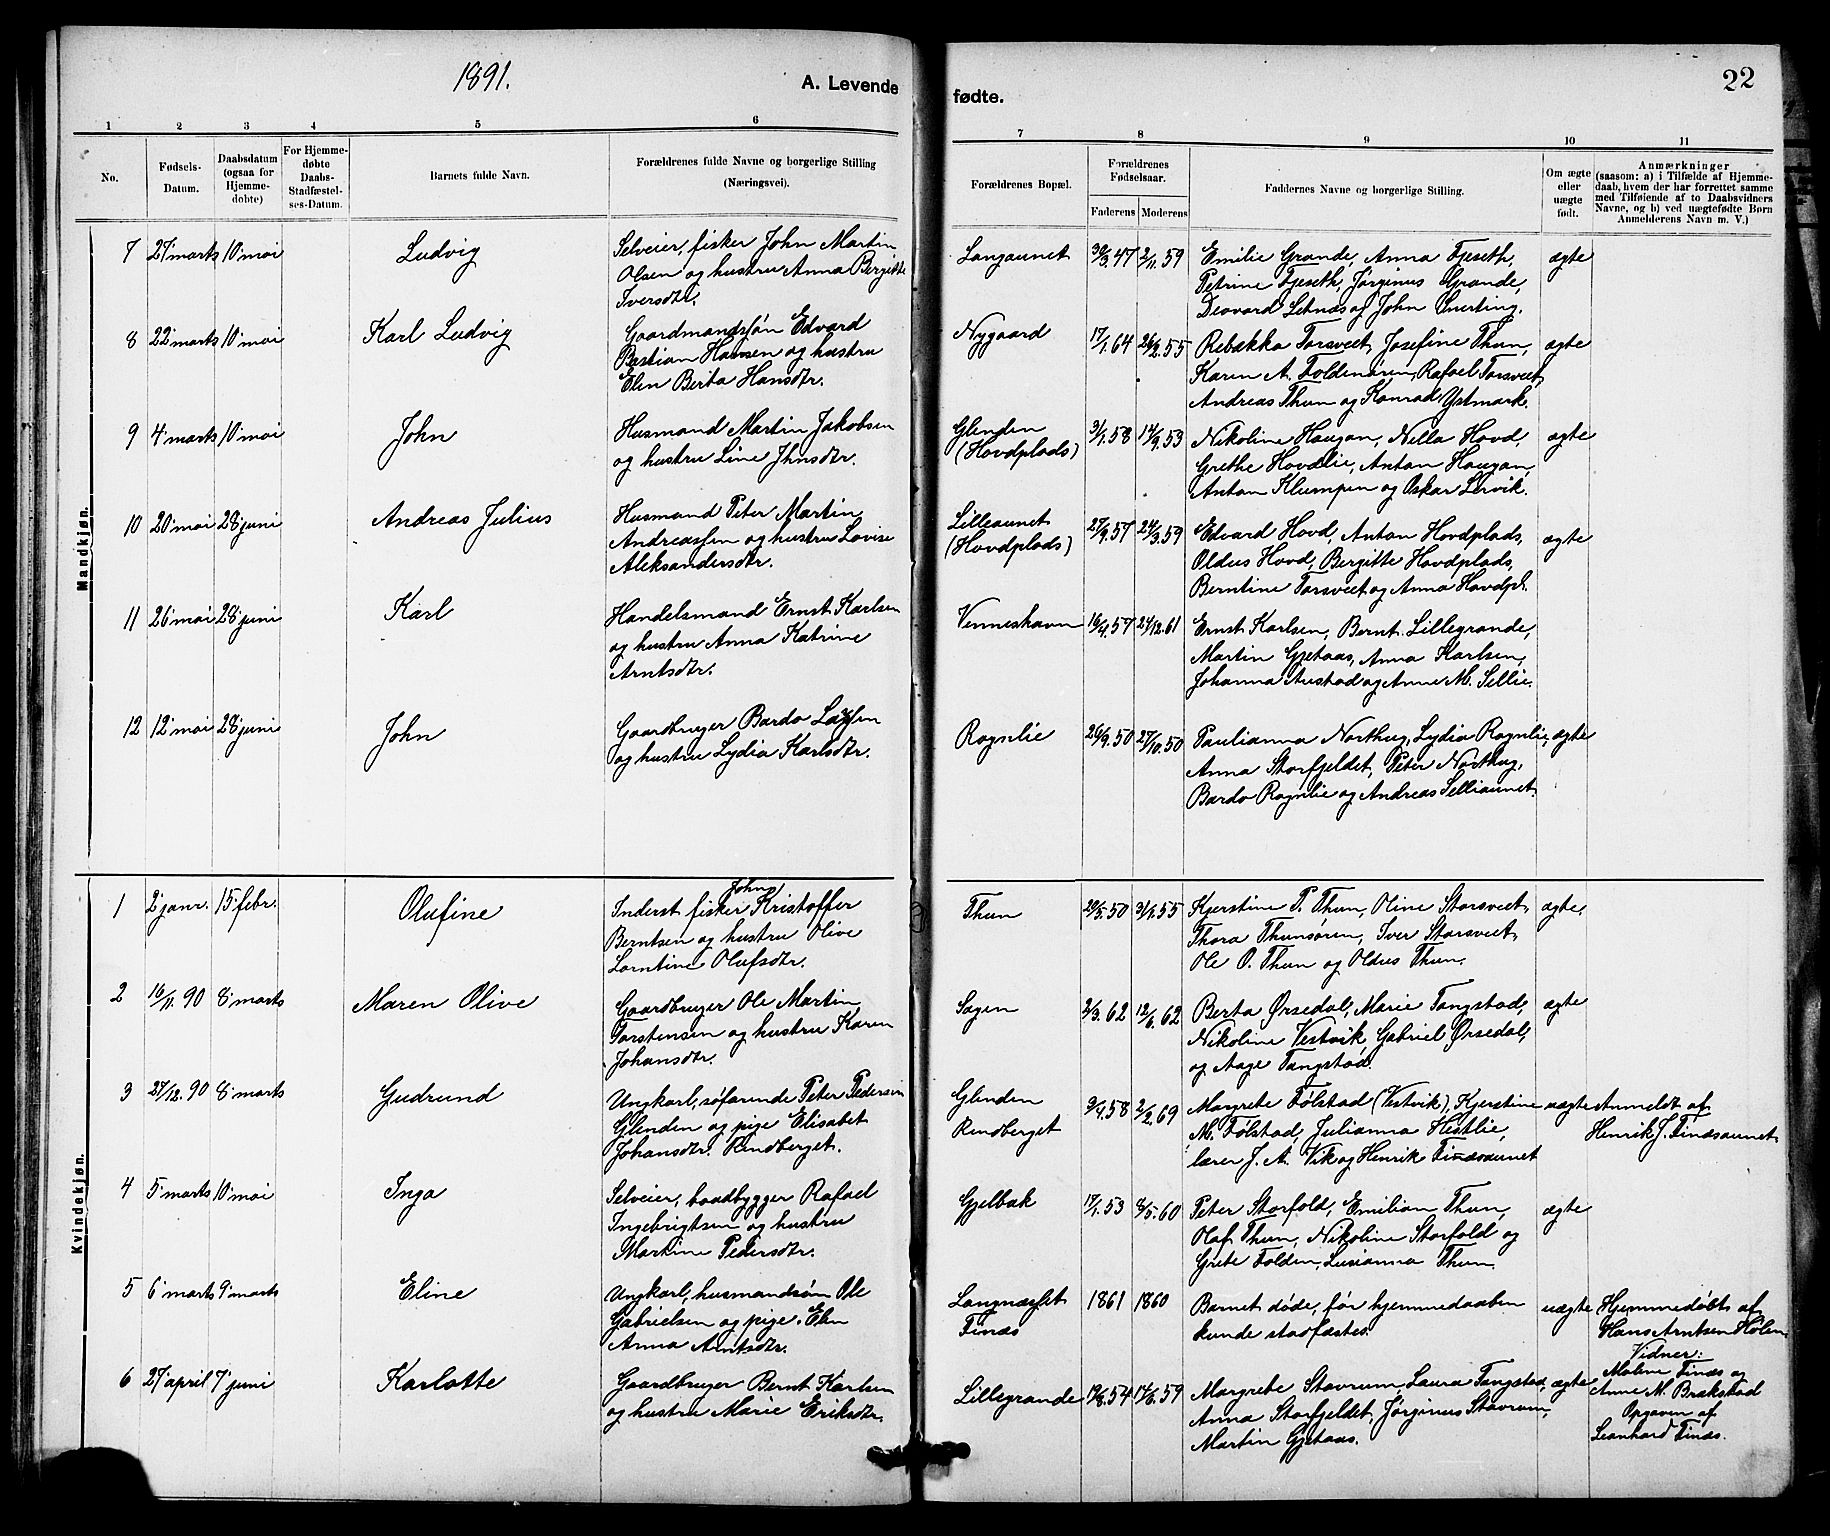 1891.
A. Levende
fødte.
22
1 2 3 4 5 6 7 8 9 10 11
No.
Fødsels-
Datum.
Daabsdatum
(ogsaa for
Hjemme-
døbte)
For Hjemme-
døbte
Daabs-
Stadfæstel-
ses-Datum.
Barnets fulde Navn.
Forældrenes fulde Navne og borgerlige Stilling
(Næringsvei).
Forældrenes Bopæl.
Forældrenes
Fødselsaar.
Faderens Moderens
Faddernes Navne og borgerlige Stilling.
Om ægte
eller
uægte
født.
Anmærkninger
(saasom: a) i Tilfælde af Hjemme-
daab, hvem der har forrettet samme
med Tilføiende af to Daabsvidners
Navne, og b) ved uægtefødte Børn
Anmelderens Navn m. V.)
Mandkjøn.
7 27 marts 10 mai Ludvig
Selveier, fisker John Martin
Olsen og hustru Anna Bergitte
Iversdtr.
Langaunet 30/3.47 2/11.59
Emilie Grande, Anna Fjeseth,
Petrine Fjeseth, Jørginus Grande,
Deovard Letnæs og John Snerting.
ægte
8 22 marts 10 mai Karl Ludvig
Gaardmandsøn Edvard
Bastian Hansen og hustru
Elen Berta Hansdtr.
Nygaard 17/1.64 26/2.55
Rebekka Torsveet, Josefine Thun,
Karen A. Foldenøren, Rafael Torsveet,
Andreas Thun og Konrad Ystmark.
ægte
9 4 marts 10 mai John
Husmand Martin Jakobsen
og hustru Line Jhnsdtr.
Glenden
(Hovdplads)
3/1.58 14/9.53
Nikoline Haugan, Nella Hovd,
Grethe Hovdlie, Anton Haugan,
Anton Klumpen og Oskar Lervik.
ægte
10 20 mai 28 juni Andreas Julius
Husmand Peter Martin
Andreassen og hustru Lovise
Aleksandersdtr.
Lilleaunet
(Hovdplads)
27/9.57 24/3.59
Edvard Hovd, Anton Hovdplads,
Oldus Hovd, Bergitte Hovdplads,
Berntine Torsveet og Anna Hovdpl.
ægte
11 26 mai 28 juni Karl
Handelsmand Ernst Karlsen
og hustru Anna Katrine
Arntsdtr.
Venneshavn 16/4.57 24/12.61
Ernst Karlsen, Bernt Lillegrande,
Martin Gjetaas, Anna Karlsen,
Johanna Austad og Anne M. Sellie.
12 12 mai 28 juni John
Gaardbruger Bardo Larsen
og hustru Lydia Karlsdtr.
Rognlie 26/9.50 27/10.50
Paulianna Northug, Lydia Rognlie,
Anna Storfjeldet, Peter Northug,
Bardo Rognlie og Andreas Selliaunet.
ægte
Kvindekjøn.
1 2 janr. 15 febr. Olufine
John
Inderst fisker Kristoffer
Berntsen og hustru Olive
Lorntine Olufsdtr.
Thun 20/5.50 31/1.55
Kjerstine P. Thun, Oline Storsveet,
Thora Thunsøren, Iver Storsveet,
Ole O. Thun og Oldus Thun.
ægte.
2 16/11.90 8 marts Maren Olive
Gaardbruger Ole Martin
Torstensen og hustru Karen
Johansdtr.
Sagen 2/3.62 12/6.62
Berta Ørsedal, Marie Tangstad,
Nikoline Vestvik, Gabriel Ørsedal,
og Aage Tangstad.
ægte
3 27/12.90 8 marts Gudrund
Ungkarl, søfarende Peter Pedersen
Glenden og pige Elisabet
Johansdtr. Rendberget.
Glenden
Rendberget
9/4.58 2/2.69
Margrete Følstad (Vestvik), Kjerstine
M. Følstad, Julianna Hestlie,
lærer J. A. Vik og Henrik Finæsaunet
uægte
Anmeldt af
Henrik J. Finæsaunet
4 5 marts 10 mai Inga
Selveier, baadbygger Rafael
Ingebrigtsen og hustru
Martine Pedersdtr.
Gjelbak 17/1.53 8/5.60
Peter Storfold, Emilian Thun,
Olaf Thun, Nikoline Storfold og
Grete Folden, Lusianna Thun.
ægte
5 6 marts 9 marts Eline
Ungkarl, husmandsøn Ole
Gabrielsen og pige Elen
Anna Arntsdtr.
Langnæsset
Finæs
1861 1860
Barnet døde, før hjemmedaaben
kunde stadfæstes.
uægte
Hjemmedøbt af
Hans Arntsen Holen
Vidner:
Moline Finæs og
Anne M. Brakstad
Opgaven af
Leonhard Finæs.
6 27 april 7 juni Karlotte
Gaardbruger Bernt Karlsen
og hustru Marie Eriksdtr.
Lillegrande 19/8.54 17/6.59
Margrete Stavrum, Laura Tangstad,
Anna Storfjeldet, Jørginus Stavrum,
Martin Gjetaas.
ægte